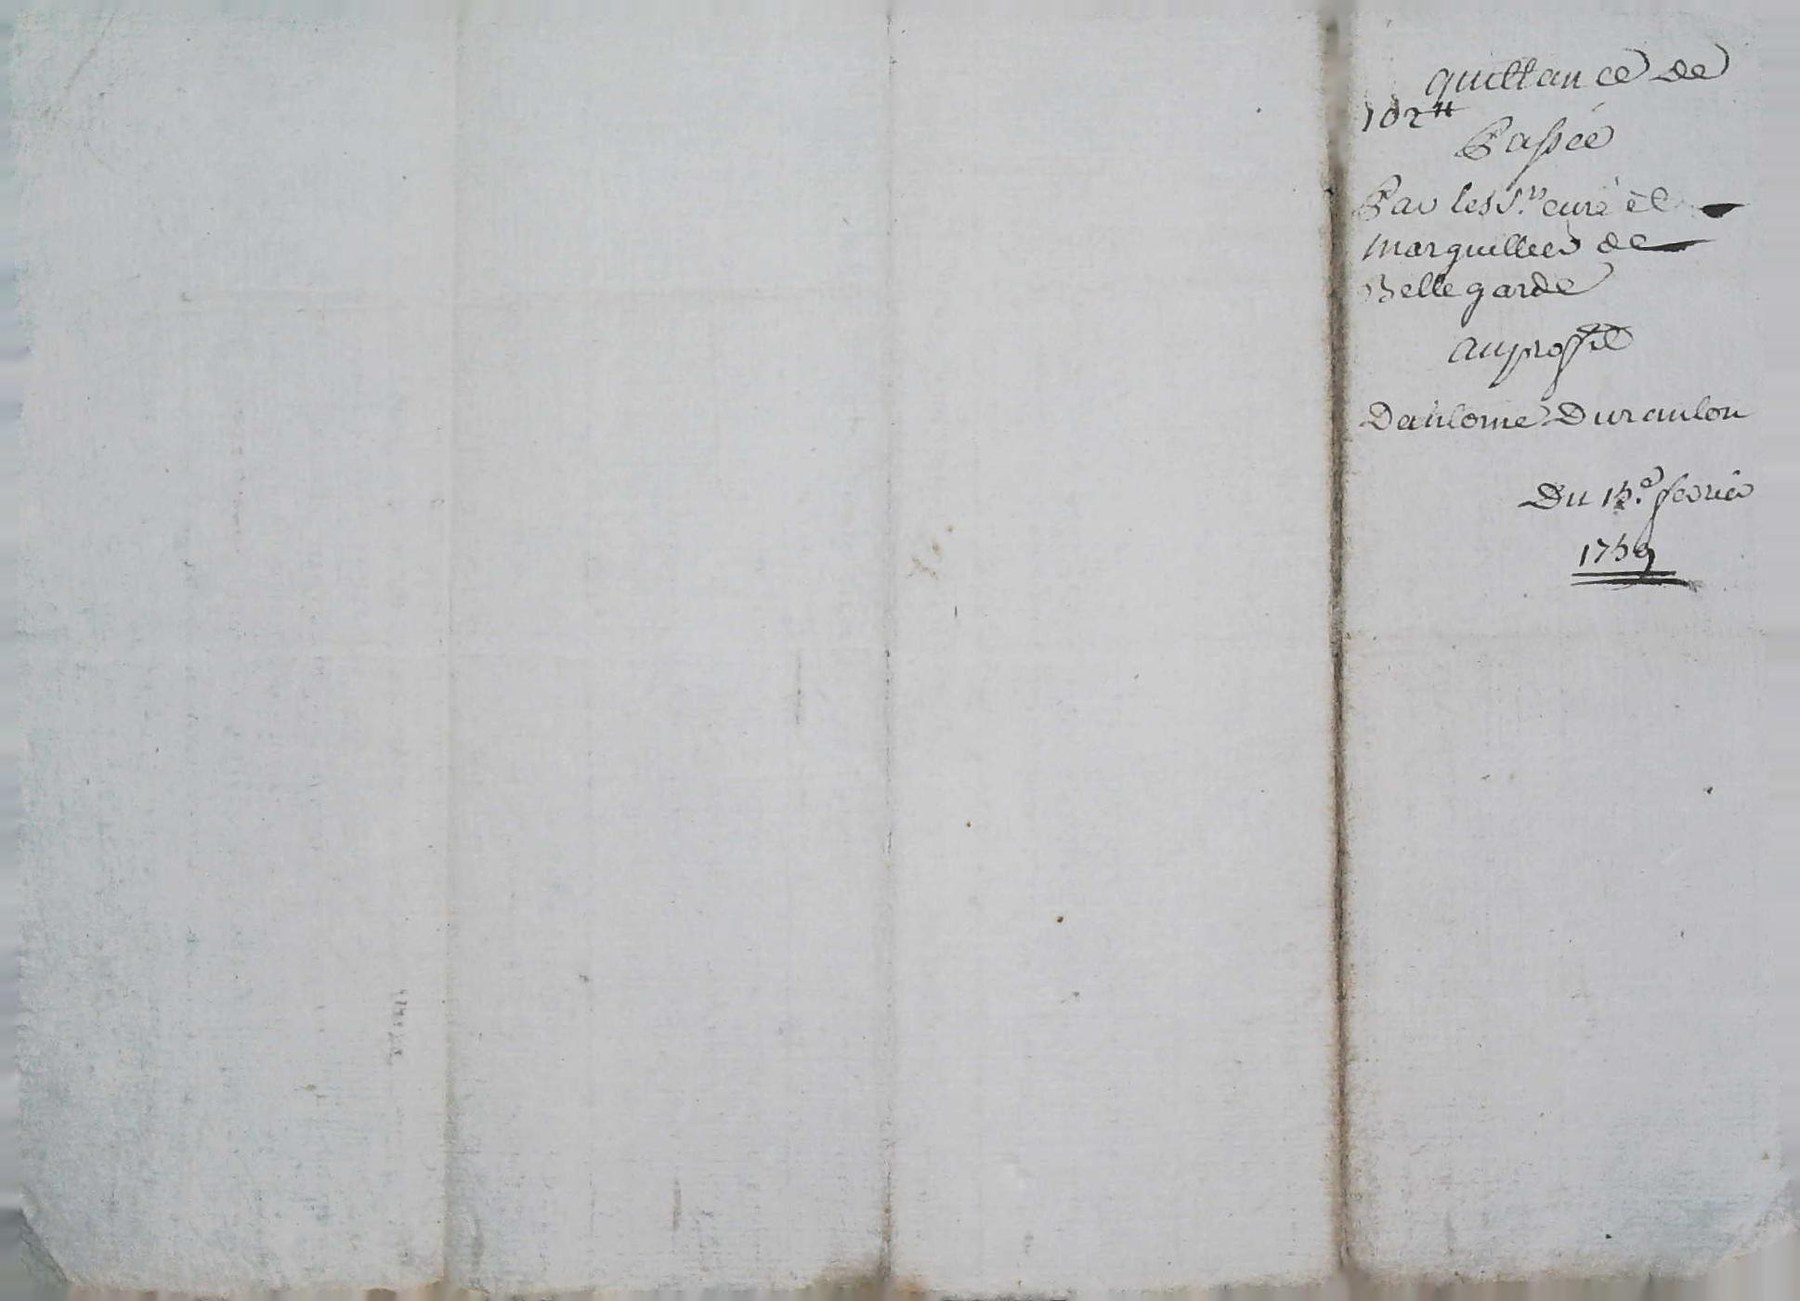 quittance de
102ᵗᵗ
Passée
Par les Sʳˢ curé et
Marguilliers de
Bellegarde
au profit
Dantoine Duranton
Du 15ᵉ fevrier
1759